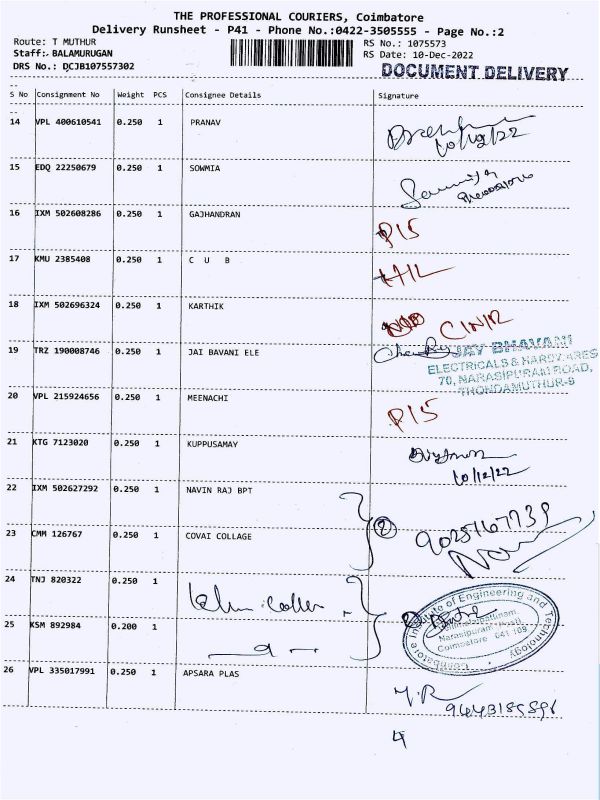 THE PROFESSIONAL COURIERS, Coimbatore
Delivery Runsheet - P41 - Phone No.:0422-3505555 - Page No.:2
Route: T MUTHUR
RS No.: 1075573
Staff:- BALAMURUGAN
RS Date: 10-Dec-2022
DRS No.: DCJB107557302
DOCUMENT DELIVERY
S No Consignment No Weight PCS Consignee Details Signature
14 VPL 400610541 0.250 1 PRANAV
10/12/22
15 EDQ 22250679 0.250 1 SOWMIA
Sowmiya
16 IXM 502608286 0.250 1 GAJHANDRAN
P15
17 KMU 2385408 0.250 1 C U B
18 IXM 502696324 0.250 1 KARTHIK
19 TRZ 190008746 0.250 1 JAI BAVANI ELE
JAY BHAVANI
ELECTRICALS & HARDWARES
70, NARASIPURAM ROAD,
THONDAMUTHUR-9
20 VPL 215924656 0.250 1 MEENACHI
P15
21 KTG 7123020 0.250 1 KUPPUSAMAY
10/12/22
22 IXM 502627292 0.250 1 NAVIN RAJ BPT
2
9025167739
23 CMM 126767 0.250 1 COVAI COLLAGE
24 TNJ 820322 0.250 1
Coimbatore Institute of Engineering and Technology
Narasipuram Post,
Coimbatore 641 109
25 KSM 892984 0.200 1
26 VPL 335017991 0.250 1 APSARA PLAS
4